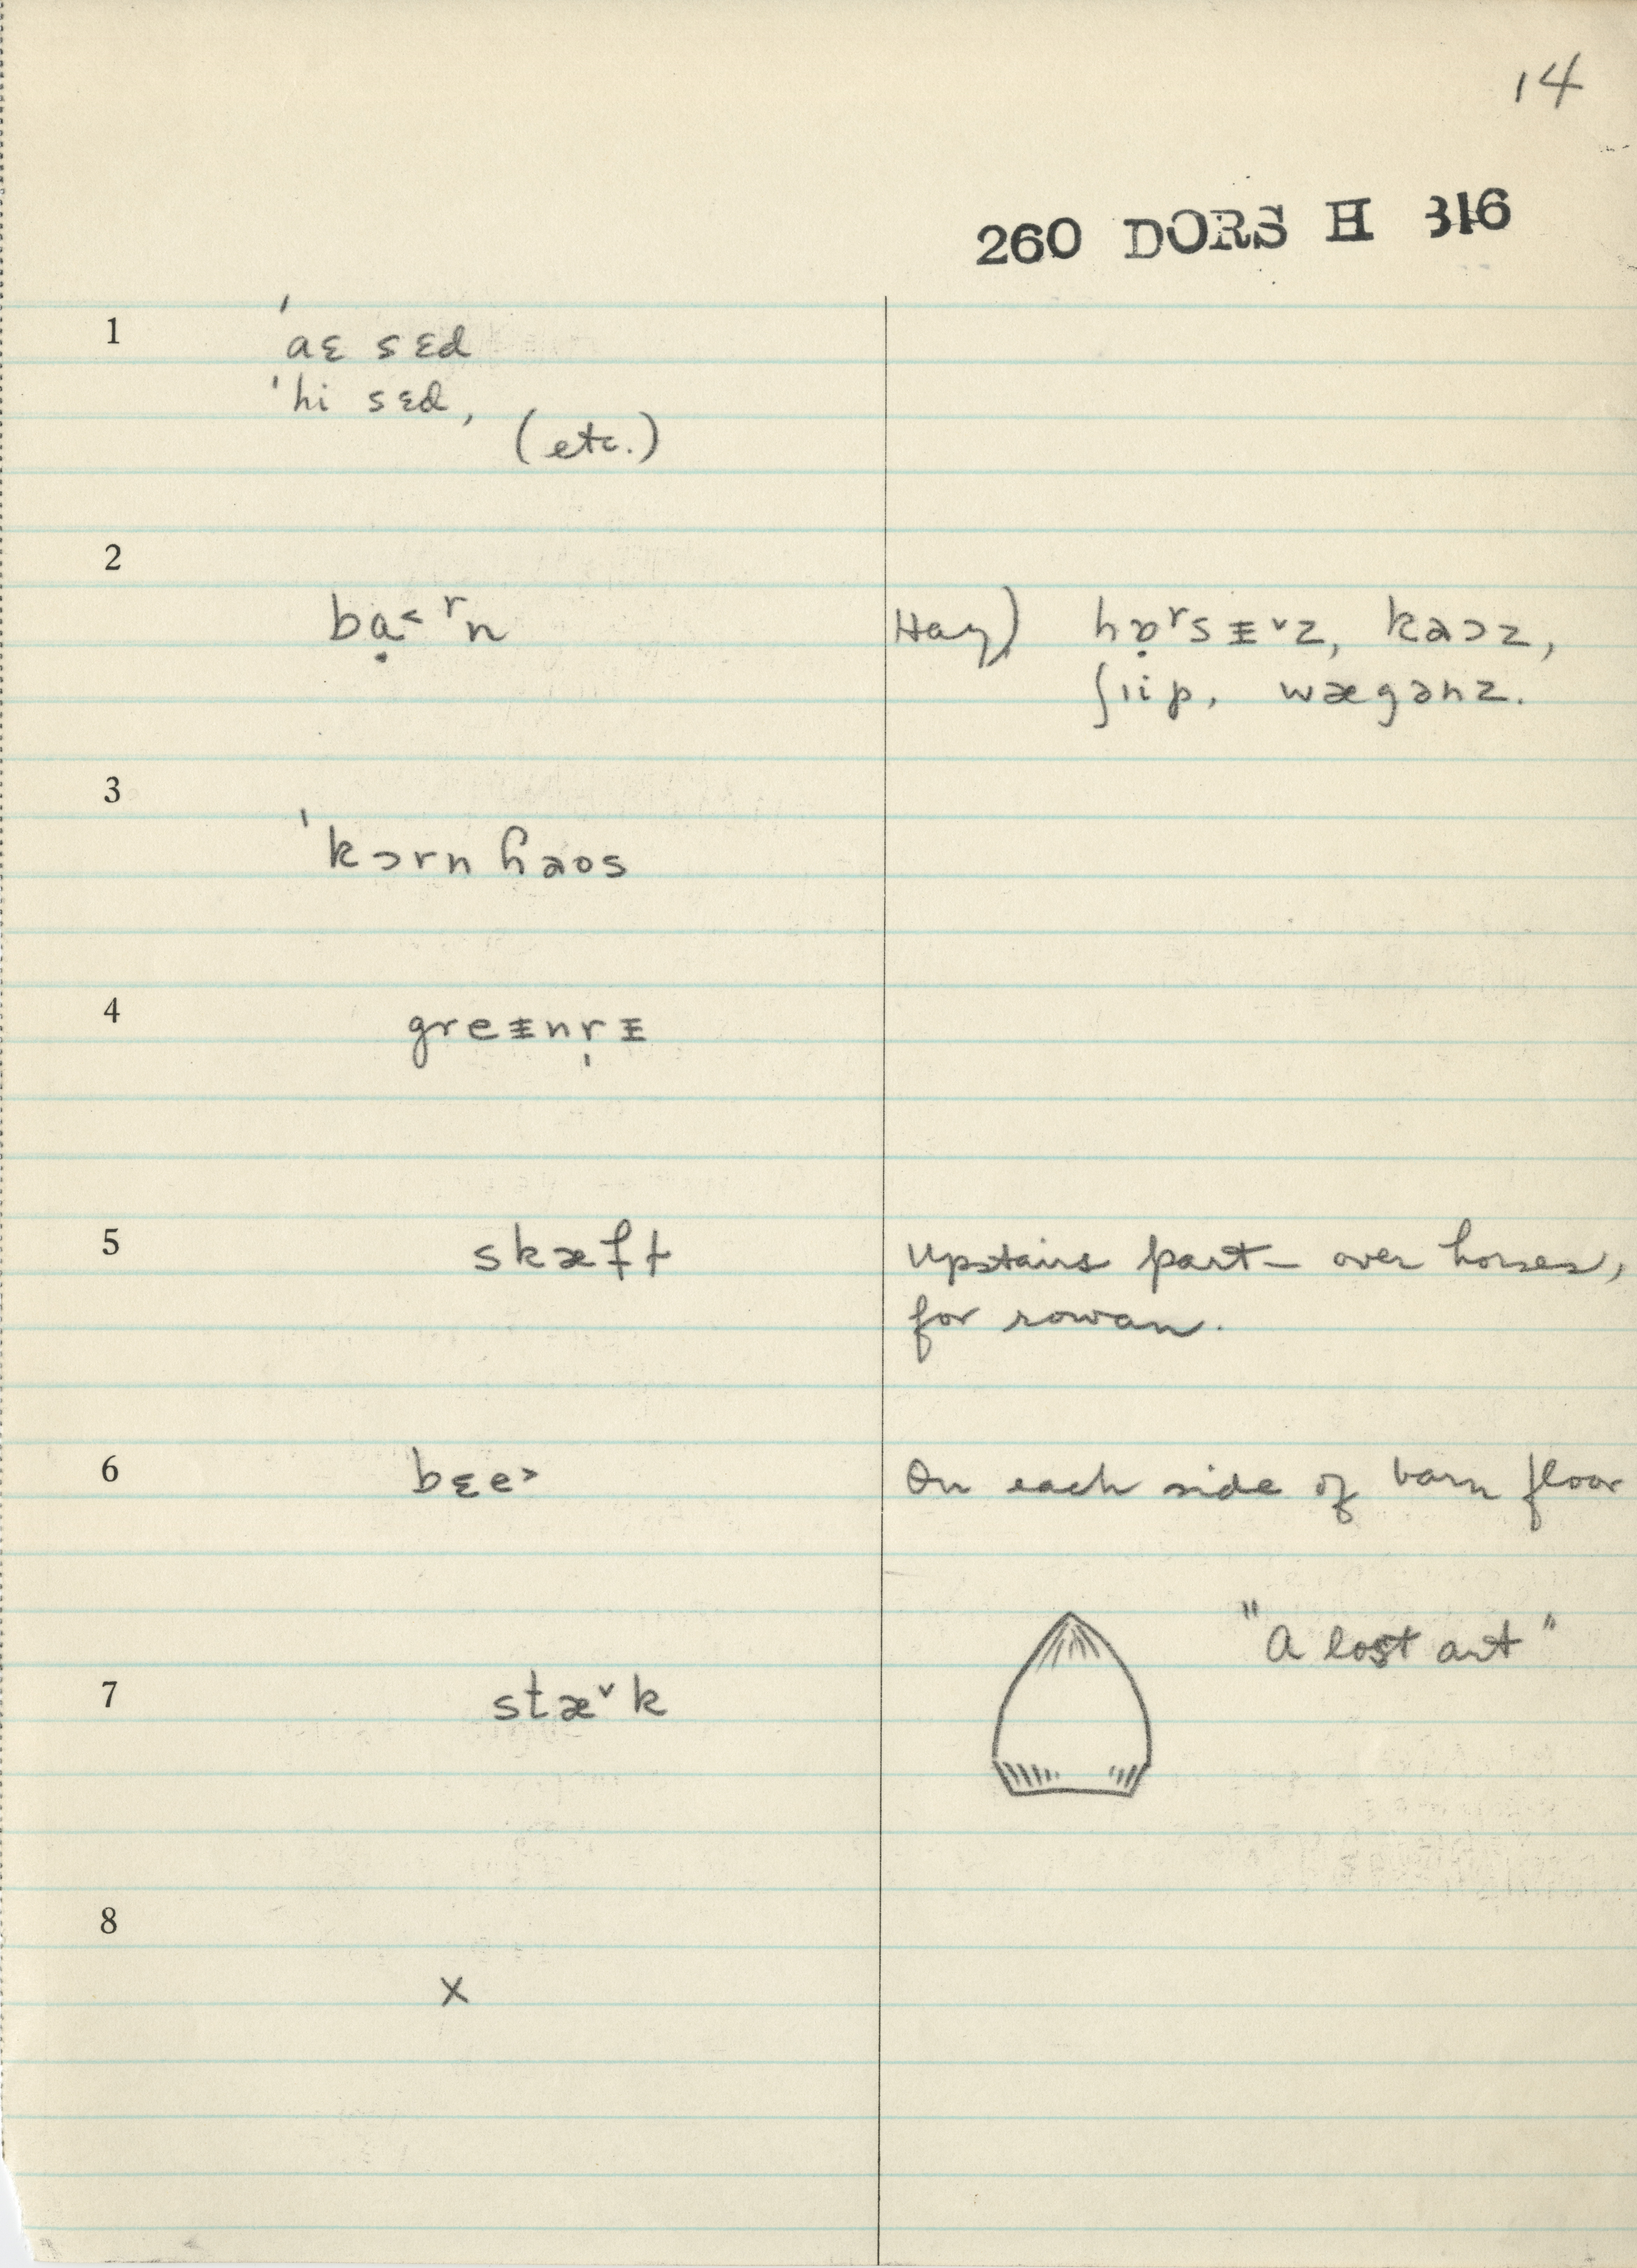 14
260 DORS H 316
1
ˈaɛ sɛd
ˈhi sɛd,
(etc.)
2
bạ˂ ʳn
Hay) hɒ̣ʳsᵻ˅z, kaɔz,
ʃıip, wægənz.
3
ˈkɔrn ɦaos
4
greᵻnr̩ᵻ
5
skæft
Upstairs part – over horses,
for rowan.
6
bɛe˃
On each side of barn floor
"A lost art"
7
stæ˅k
8
x